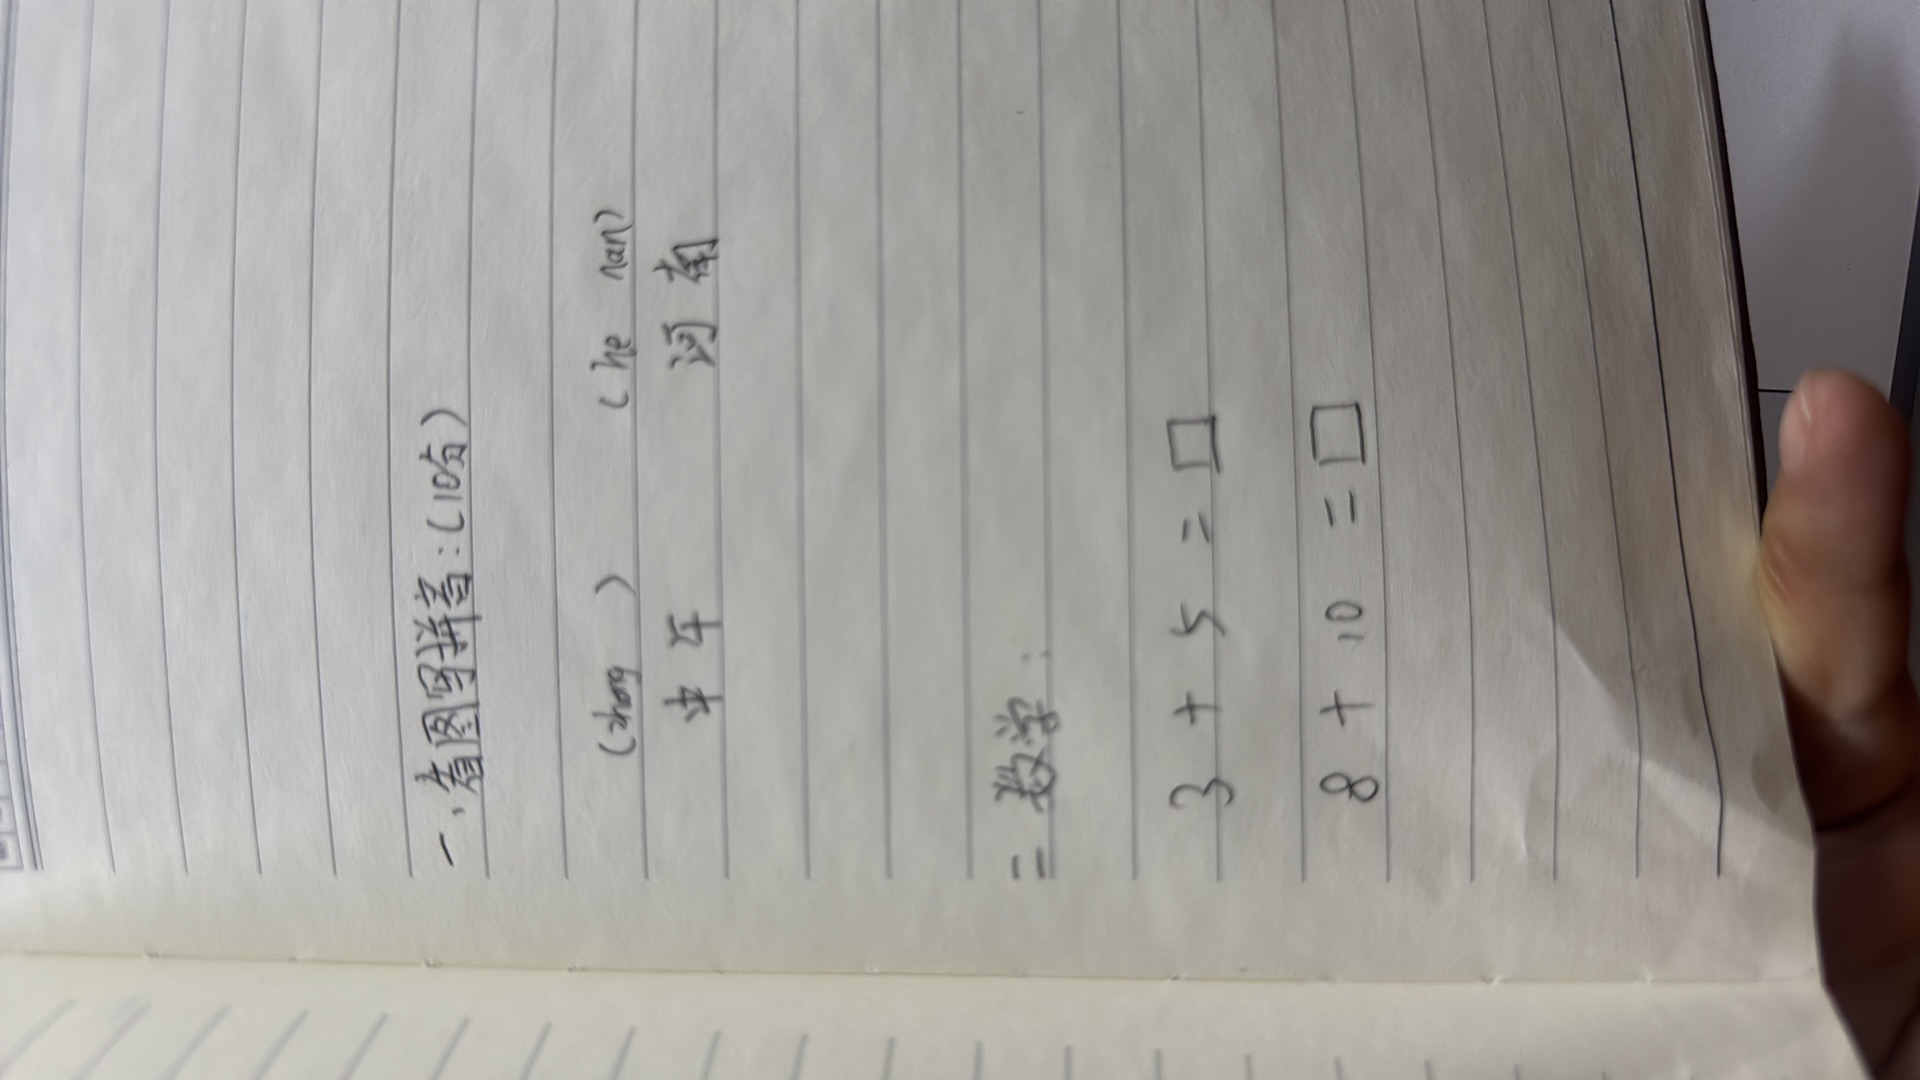 一、看图写拼音:(10分)
(zhong  ) (he nan)
中午 河南
二 数学:
3 + 5 = □
8 + 10 = □